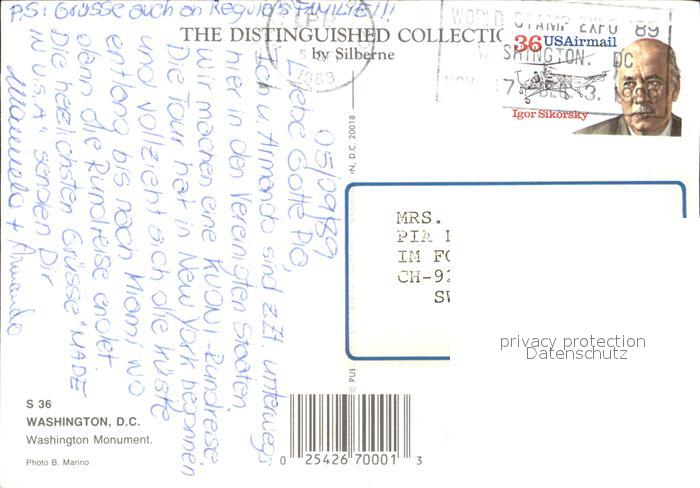 P.S: Grüsse auch an Regula's FAMILIE!!!
THE DISTINGUISHED COLLECTIO
by Silberne
1989
WORLD STAMP EXPO '89
WASHINGTON, DC
NOV. 17 DEC. 3.
36 USAirmail
Igor Sikorsky
05/09/89
Liebe Gotte Pia,
Ich u. Armando sind z.Zt. unterwegs
hier in den Vereinigten Staaten.
Wir machen eine KUONI-Rundreise.
Die Tour hat in New York begonnen
und vollzieht sich die Küste
entlang bis nach Miami, wo
dann die Rundreise endet.
Die herzlichsten Grüsse "MADE
IN U.S.A." senden Dir
Manuela + Armando
N, D.C. 20018
© PUB
MRS.
PIA
IM FO
CH-92
SW
privacy protection
Datenschutz
S 36
WASHINGTON, D.C.
Washington Monument.
Photo B. Marino
0 25426 70001 3